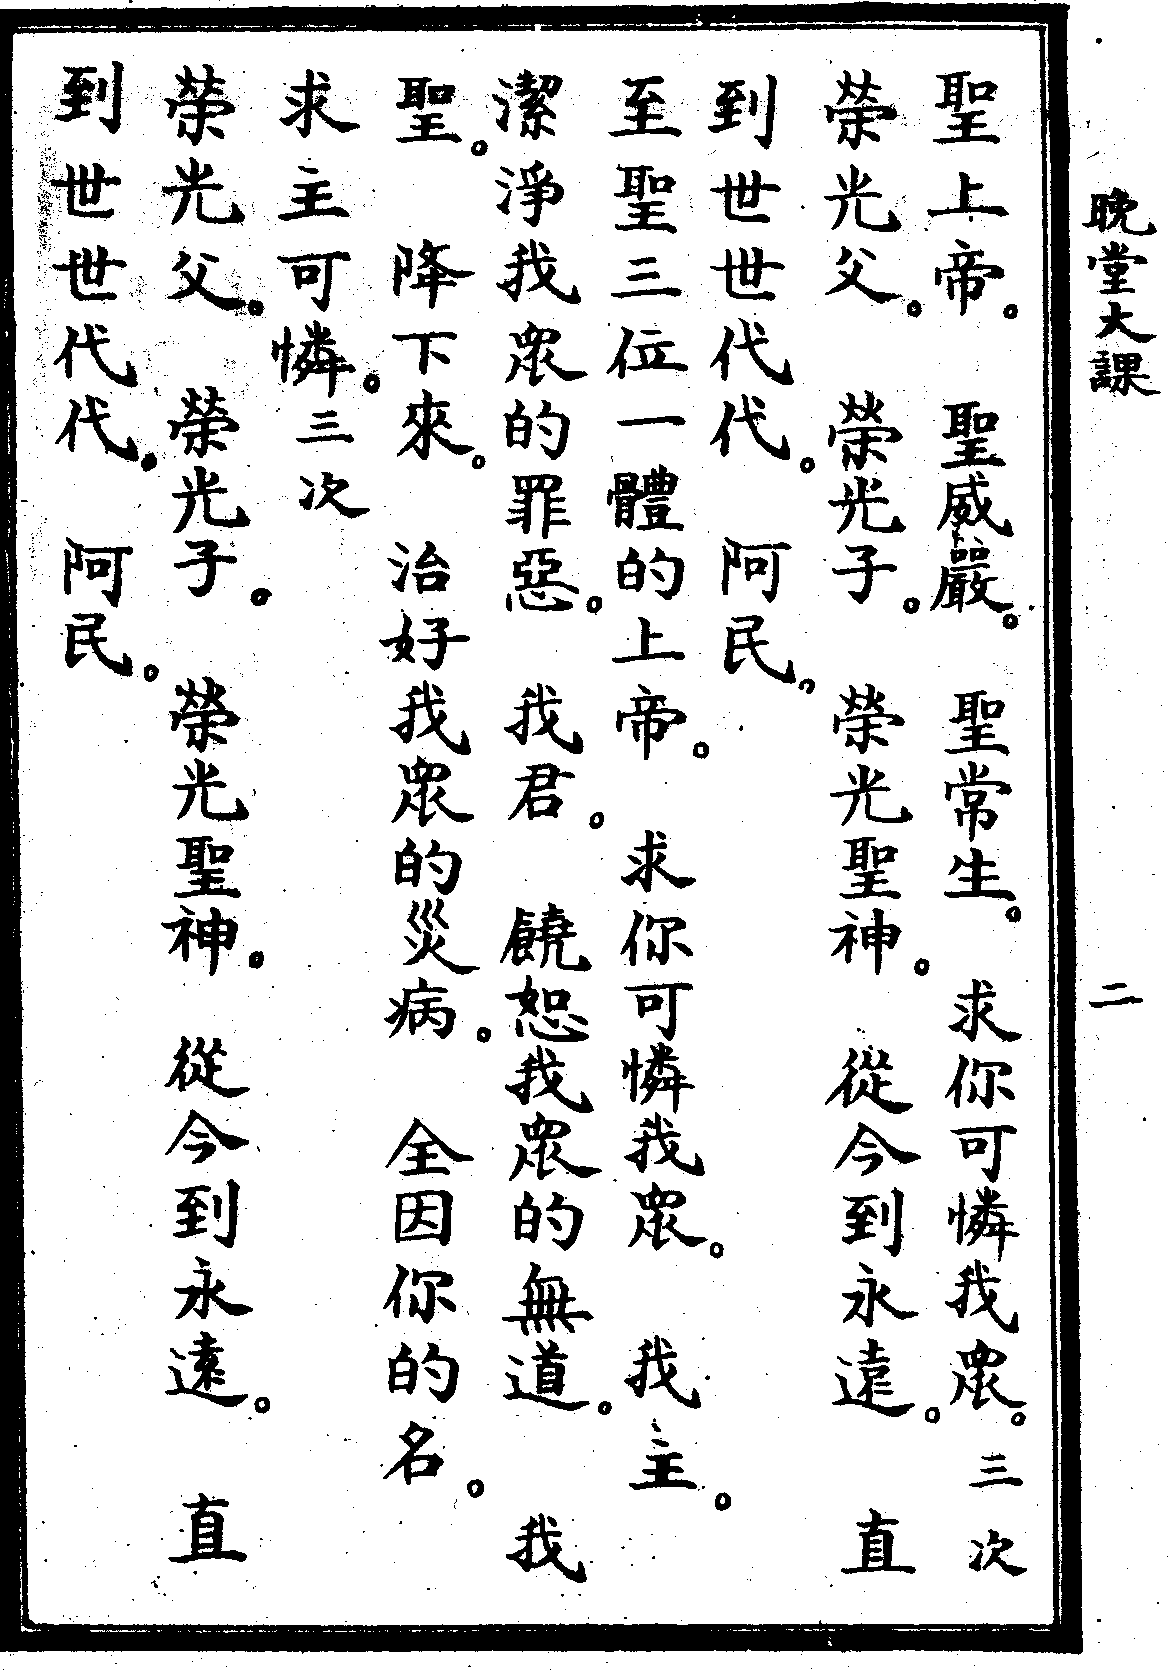 晚堂大課 二
聖上帝。 聖威嚴。 聖常生。 求你可憐我眾。三次
榮光父。 榮光子。 榮光聖神。 從今到永遠。 直
到世世代代。 阿民。
至聖三位一體的上帝。 求你可憐我眾。 我主。
潔淨我眾的罪惡。 我君。 饒恕我眾的無道。 我
聖。 降下來。 治好我眾的災病。 全因你的名。
求主可憐。三次
榮光父。 榮光子。 榮光聖神。 從今到永遠。 直
到世世代代。 阿民。